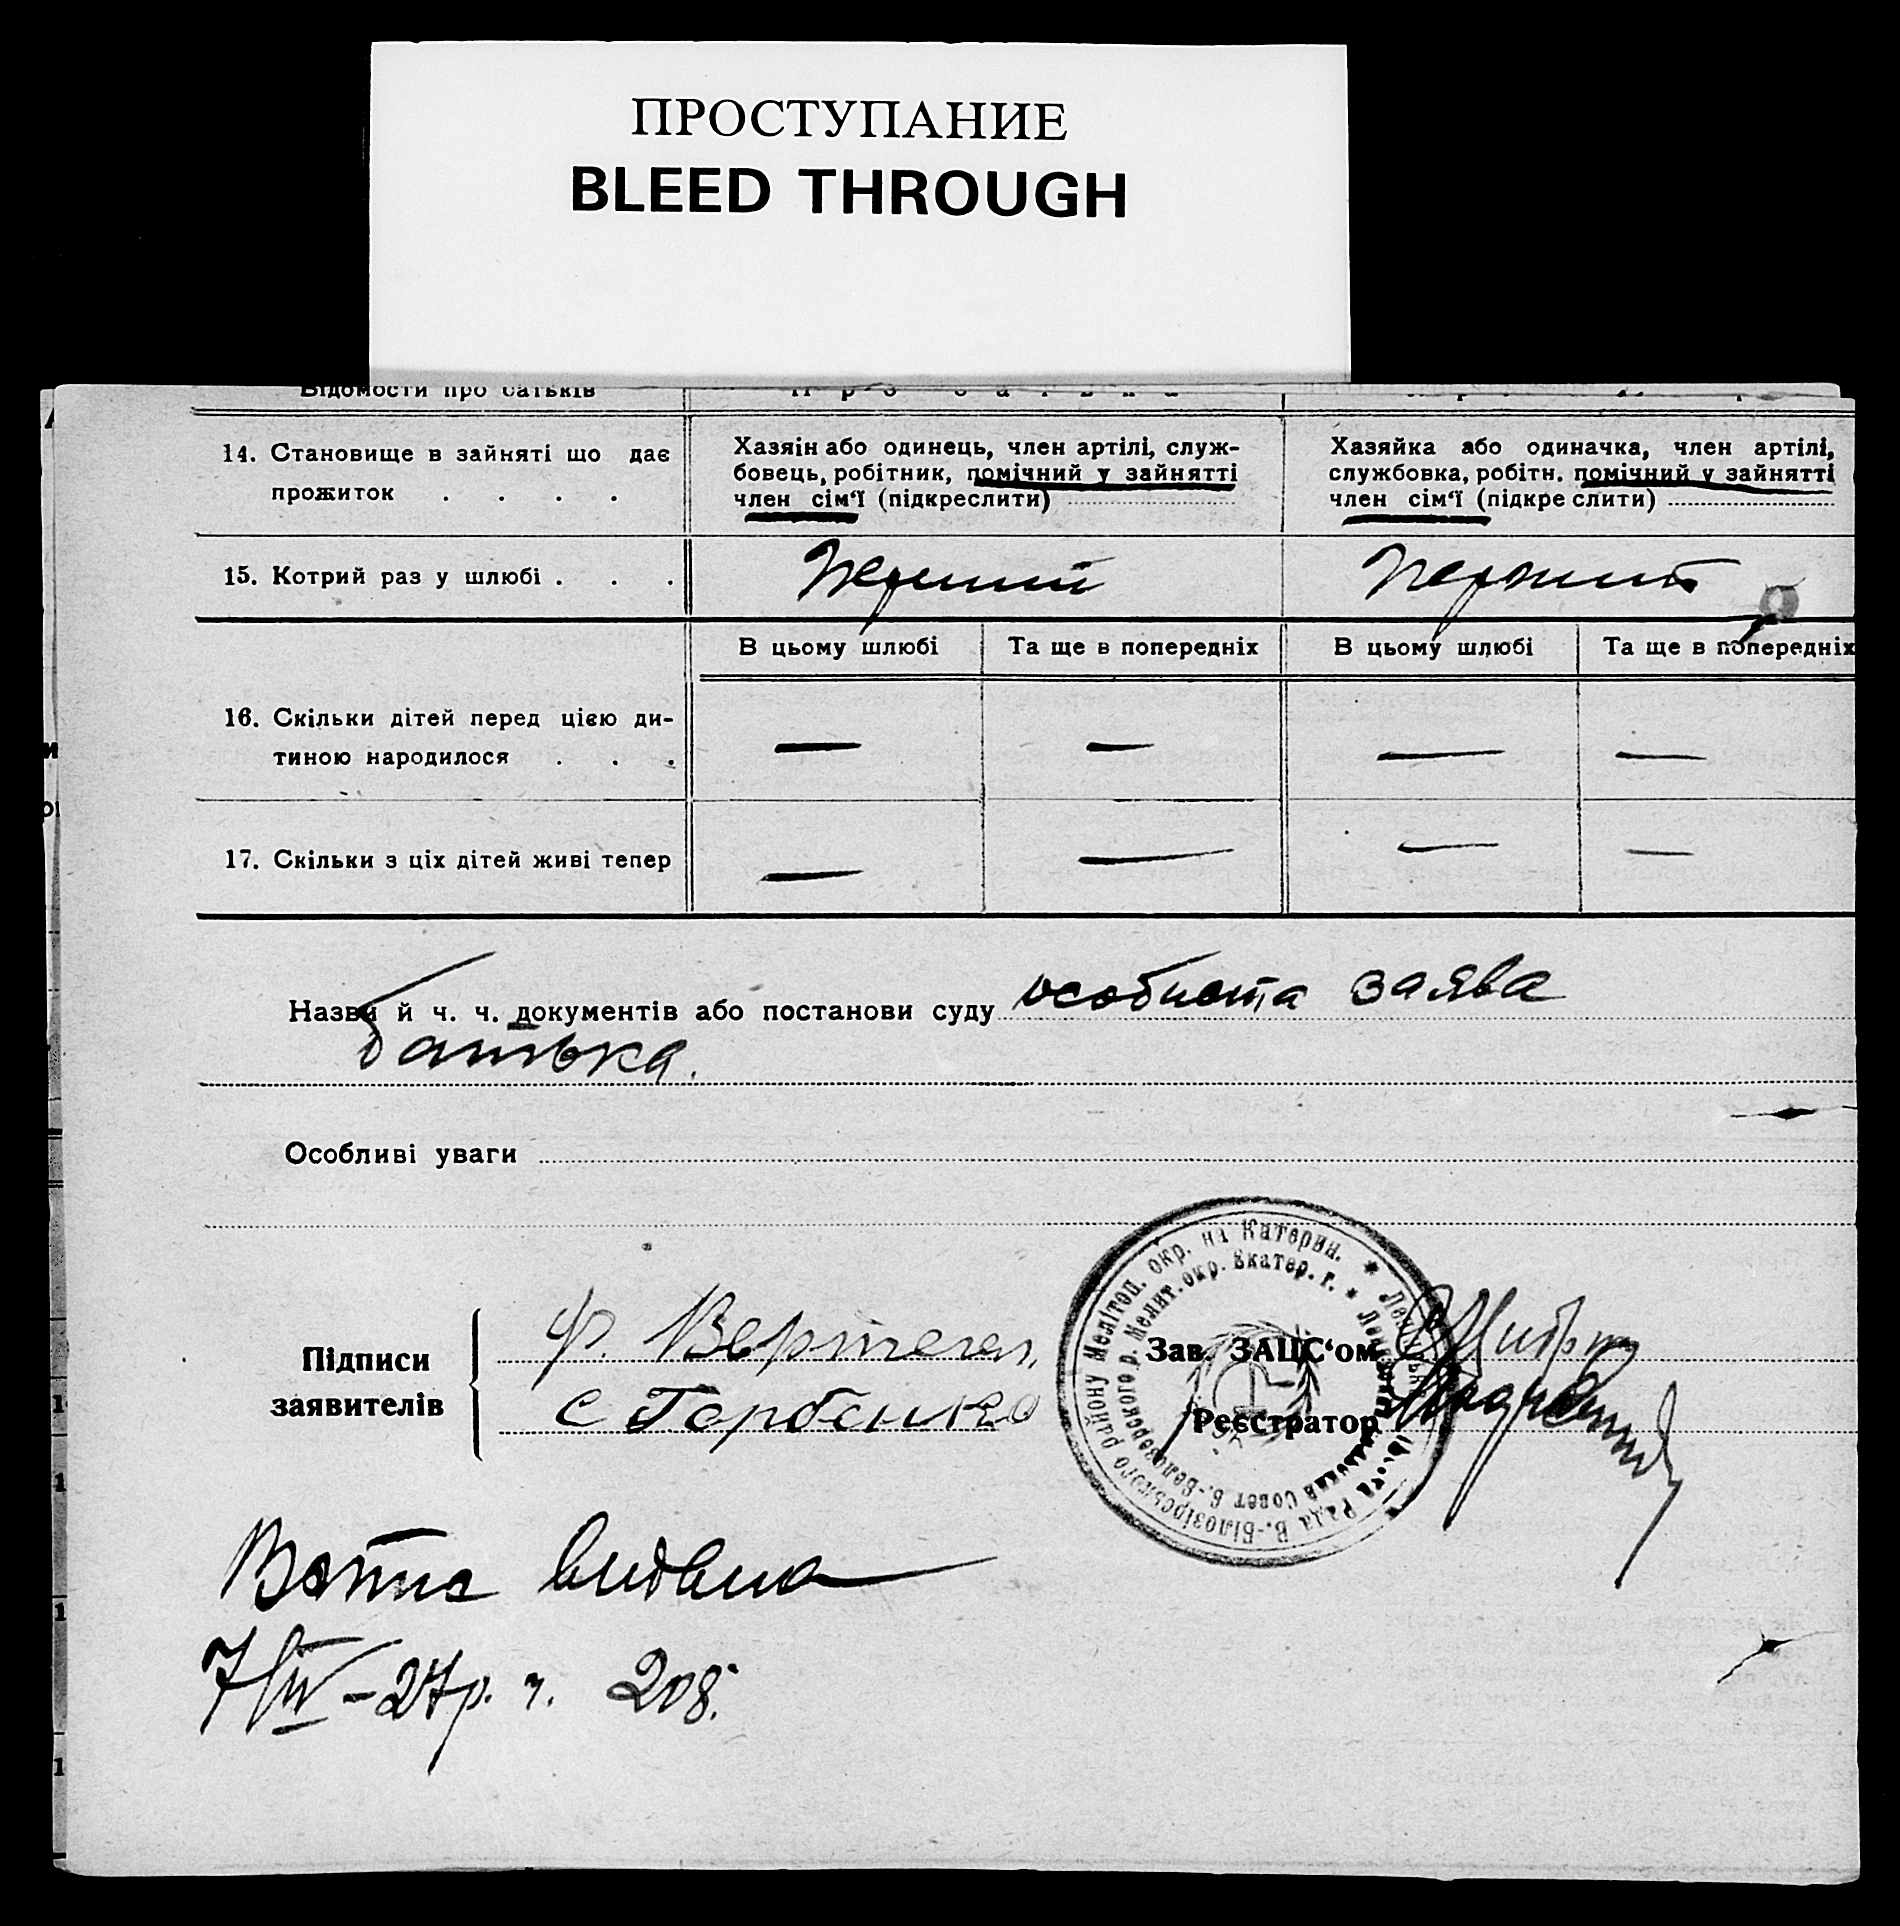 ПРОСТУПАНИЕ
BLEED THROUGH
Відомости про батьків
14. Становище в зайняті що дає
прожиток . . . .
Хазяїн або одинець, член артілі, служ-
бовець, робітник, помічний у зайнятті
член сім‘ї (підкреслити)
Хазяйка або одиначка, член артілі,
службовка, робітн. помічний у зайнятті
член сім‘ї (підкреслити)
15. Котрий раз у шлюбі . . .
Перший
Перший
В цьому шлюбі
Та ще в попередніх
В цьому шлюбі
Та ще в попередніх
16. Скільки дітей перед цією ди-
тиною народилося . . .
— — — —
17. Скільки з ціх дітей живі тепер
— — — —
Назви й ч. ч. документів або постанови суду особиста заява
батька.
Особливі уваги
Підписи
заявителів
Ф. Вертегел
С Горбенко
Зав. ЗАЦС‘ом
Реєстратор
району Мелітоп. окр. на Катерин. *
Рада В.-Білозірського
Мелит. окр. Екатер. г. *
Совет Б.-Белозерского р.
видана
7/IV – 27 р. ч. 208.